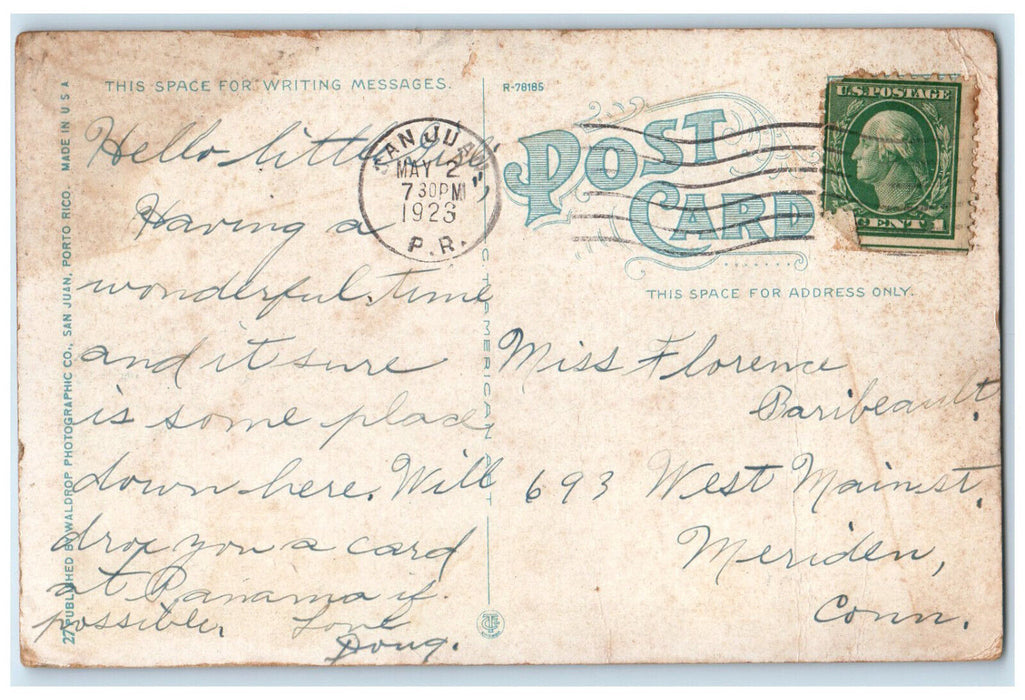 THIS SPACE FOR WRITING MESSAGES.
Hello little
Having a
wonderful time
and it sure
is some place
down here. Will
drop you a card
at Panama if
possible. Love
Doug.
27 PUBLISHED BY WALDROP PHOTOGRAPHIC CO., SAN JUAN, PORTO RICO. MADE IN U S A
SAN JUAN
MAY 2
7 30PM
1923
P.R.
R-78185
POST
CARD
U.S. POSTAGE
CENT 1
THIS SPACE FOR ADDRESS ONLY.
Miss Florence
Baribeault.
693 West Main st.
Meriden,
Conn.